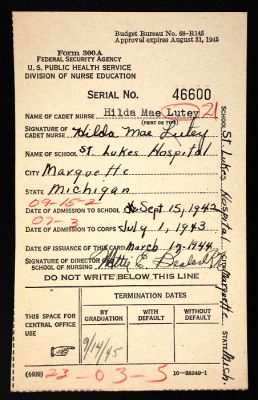 Budget Bureau No. 68-R145
Approval expires August 31, 1945
Form 300A
FEDERAL SECURITY AGENCY
U. S. PUBLIC HEALTH SERVICE
DIVISION OF NURSE EDUCATION
SERIAL NO. 46600
NAME OF CADET NURSE Hilda Mae Lutey 21
(PRINT OR TYPE)
SIGNATURE OF CADET NURSE Hilda Mae Lutey
NAME OF SCHOOL St. Lukes Hospital
CITY Marquette
STATE Michigan
09-15-2
DATE OF ADMISSION TO SCHOOL Sept 15, 1942
07-3
DATE OF ADMISSION TO CORPS July 1, 1943
DATE OF ISSUANCE OF THIS CARD March 17-1944
SIGNATURE OF DIRECTOR SCHOOL OF NURSING Hattie E.
DO NOT WRITE BELOW THIS LINE
THIS SPACE FOR CENTRAL OFFICE USE
TERMINATION DATES
BY GRADUATION
WITH DEFAULT
WITHOUT DEFAULT
9/14/45
(4409) 23-03-5 16-35249-1
SCHOOL St. Lukes Hospital CITY Marquette STATE Mich.